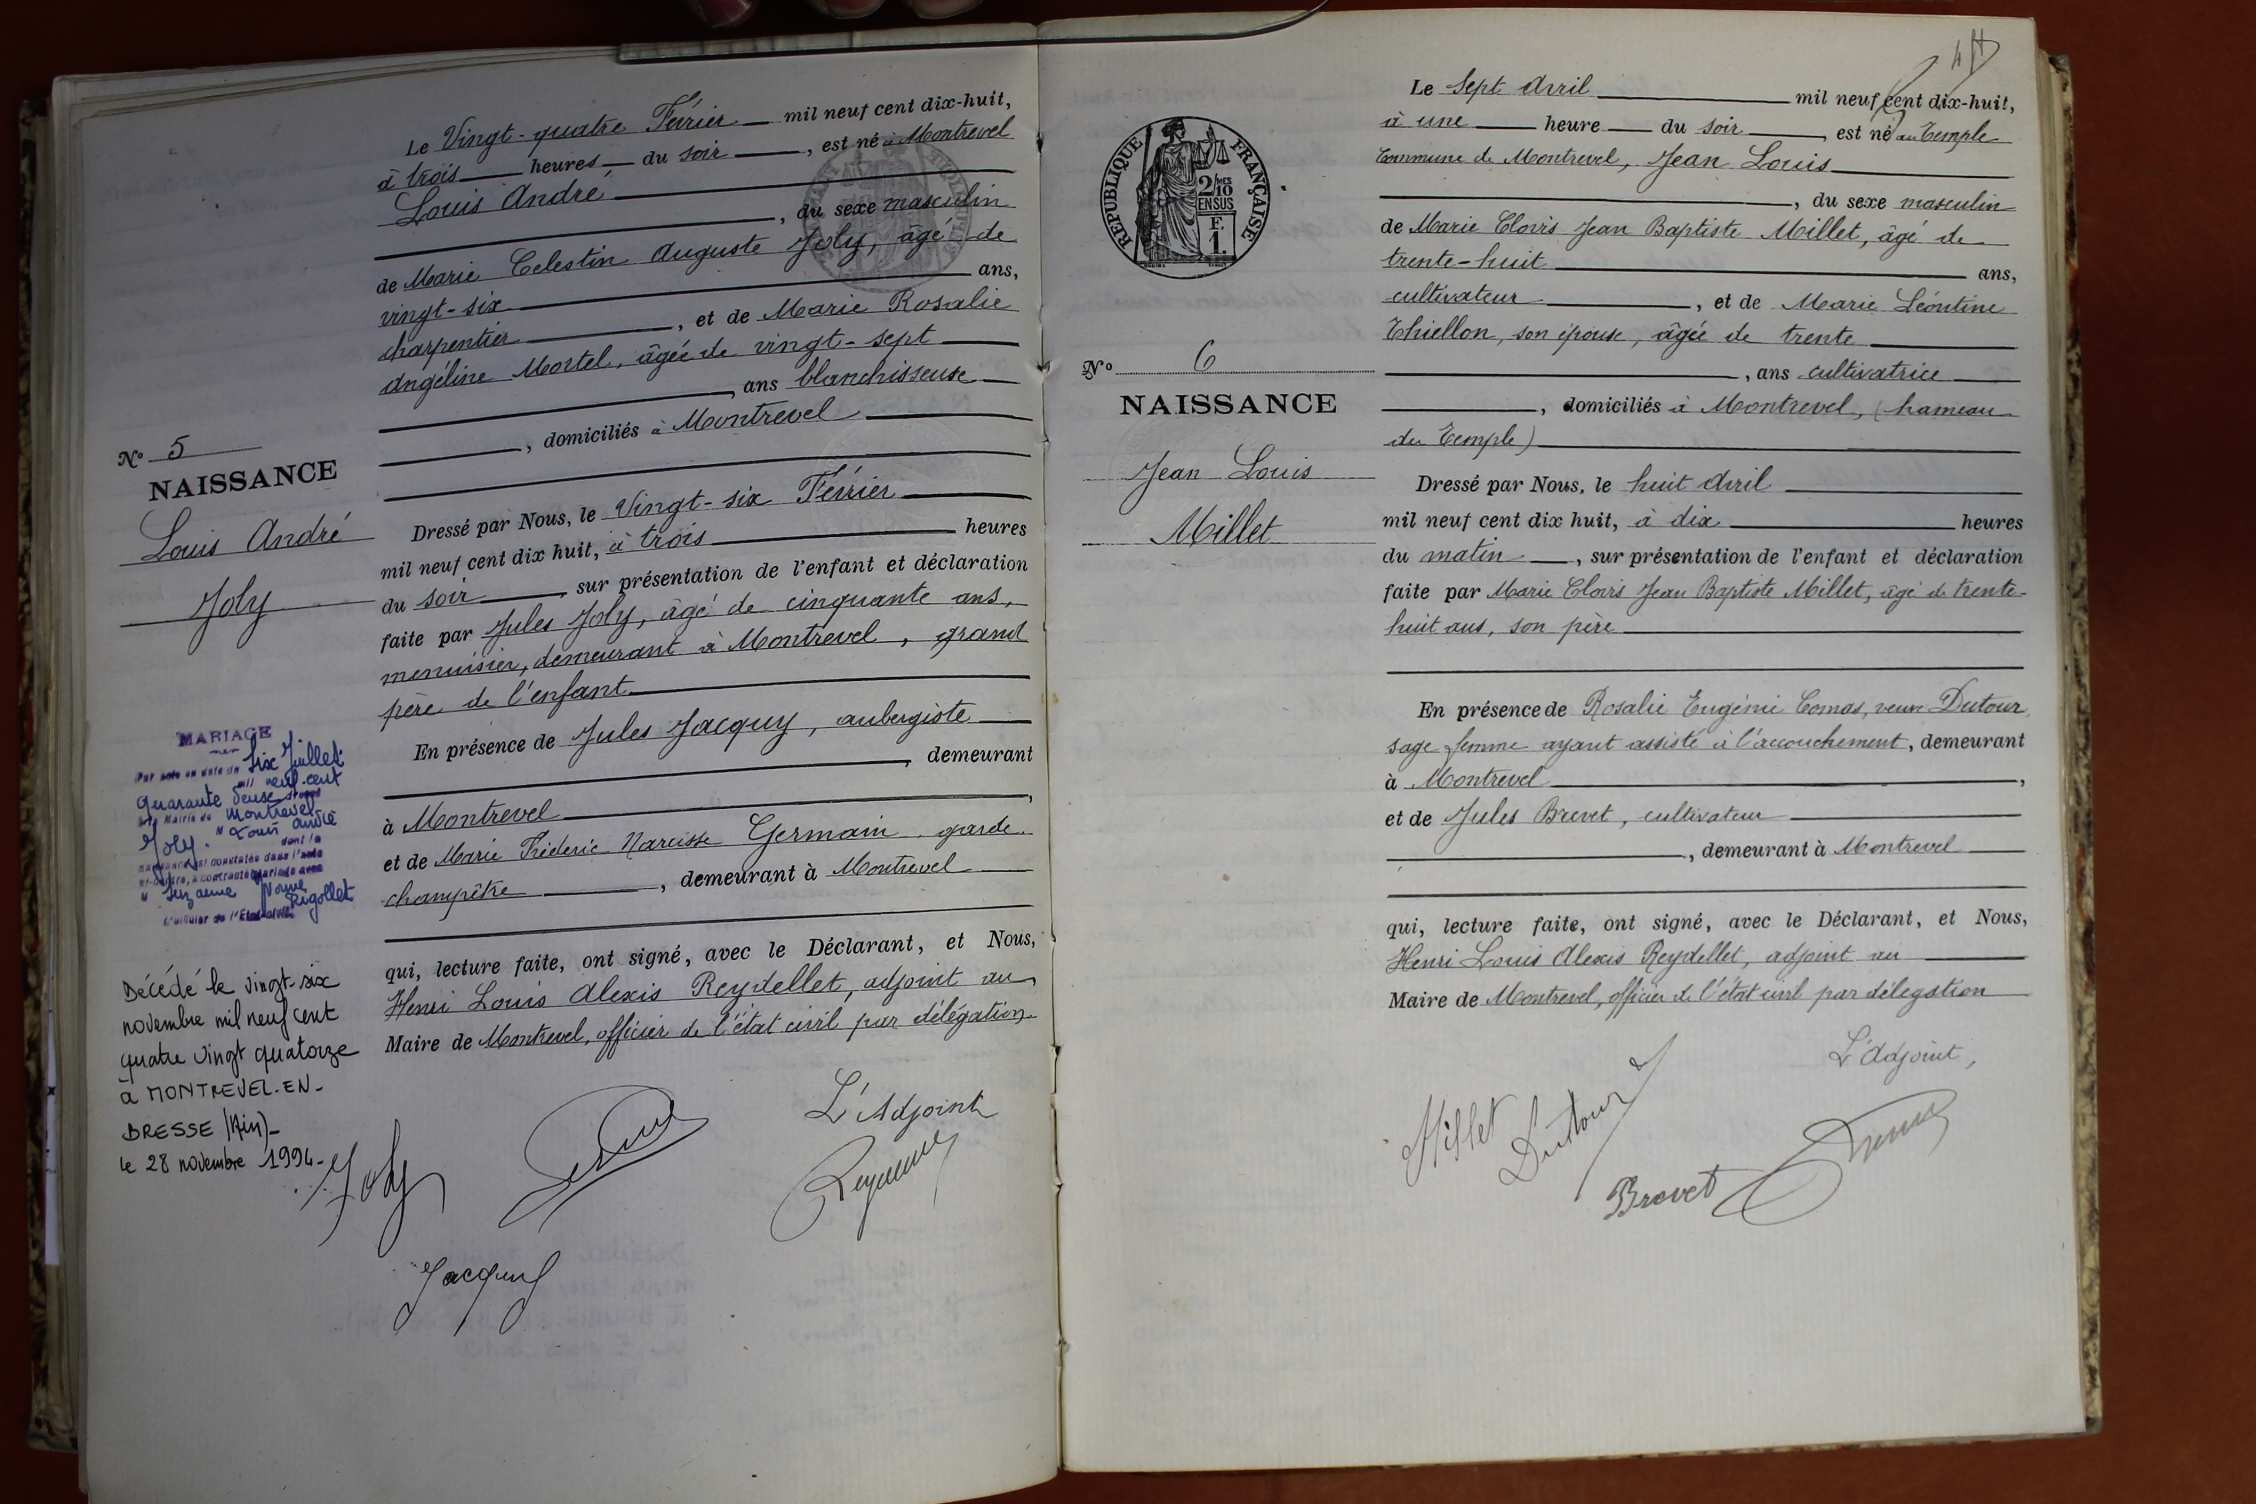 Le Vingt-quatre Février mil neuf cent dix-huit,
à trois heures du soir, est né à Montrevel
Louis André
, du sexe masculin
de Marie Celestin Auguste Joly, âgé de
vingt-six ans,
charpentier, et de Marie Rosalie
Angéline Mortel, âgée de vingt-sept
, ans blanchisseuse
, domiciliés à Montrevel
N° 5
NAISSANCE
Louis André
Joly
Dressé par Nous, le Vingt-six Février
mil neuf cent dix huit, à trois heures
du soir, sur présentation de l'enfant et déclaration
faite par Jules Joly, âgé de cinquante ans,
menuisier, demeurant à Montrevel, grand
père de l'enfant
En présence de Jules Jacquy, aubergiste
, demeurant
à Montrevel,
et de Marie Fréderic Narcisse Germain garde
champêtre, demeurant à Montrevel
qui, lecture faite, ont signé, avec le Déclarant, et Nous,
Henri Louis Alexis Reydellet, adjoint au
Maire de Montrevel, officier de l'état civil par délégation
L'Adjoint
Joly
Jacquy
MARIAGE
Par acte en date du Six Juillet
mil neuf cent
quarante deuse
Mairie de Montrevel
M Louis André
Joly dont la
naissance est constatée dans l'acte
ci-contre, a contracté mariage avec
M Suzanne
Rigollet
L'Officier de l'Etat civil
Décédé le vingt-six
novembre mil neuf cent
quatre vingt quatorze
à MONTREVEL-EN-
BRESSE (Ain)-
le 28 novembre 1994-
RÉPUBLIQUE FRANÇAISE
2/10
EN SUS
F.
1.
Le Sept Avril mil neuf cent dix-huit,
à une heure du soir, est né au Temple
commune de Montrevel, Jean Louis
, du sexe masculin
de Marie Clovis Jean Baptiste Millet, âgé de
trente-huit ans,
cultivateur, et de Marie Léontine
Thiellon, son épouse, âgée de trente
, ans cultivatrice
, domiciliés à Montrevel, (hameau
du Temple)
N° 6
NAISSANCE
Jean Louis
Millet
Dressé par Nous, le huit Avril
mil neuf cent dix huit, à dix heures
du matin, sur présentation de l'enfant et déclaration
faite par Marie Clovis Jean Baptiste Millet, âgé de trente-
huit ans, son père
En présence de Rosalie Eugénie Comas, veuve Dutour
sage femme ayant assisté à l'accouchement, demeurant
à Montrevel,
et de Jules Brevet, cultivateur
, demeurant à Montrevel
qui, lecture faite, ont signé, avec le Déclarant, et Nous,
Henri Louis Alexis Reydellet, adjoint au
Maire de Montrevel, officier de l'état civil par délégation
L'Adjoint,
Millet
Dutour
Brevet